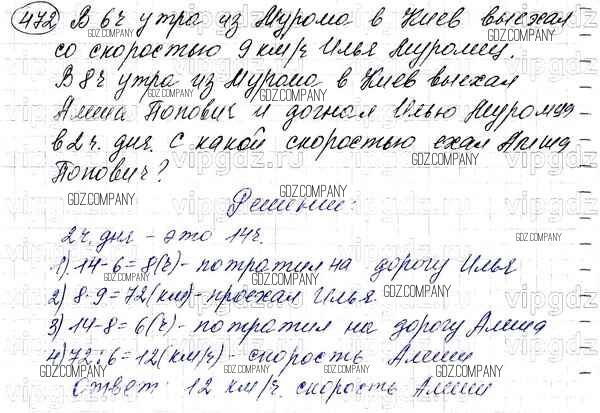 472 В 6ч утра из Мурома в Киев выехал
со скоростью 9 км/ч Илья Муромец.
В 8ч утра из Мурома в Киев выехал
Алёша Попович и догнал Илью Муромца
в 2 ч. дня. С какой скоростью ехал Алёша
Попович?
Решение:
2ч. дня - это 14ч.
1) 14-6=8(ч)- потратил на дорогу Илья
2) 8·9=72(км)- проехал Илья
3) 14-8=6(ч)- потратил на дорогу Алёша
4) 72:6=12(км/ч)- скорость Алёши
Ответ: 12 км/ч. скорость Алёши
GDZ.COMPANY
vipgdz.ru